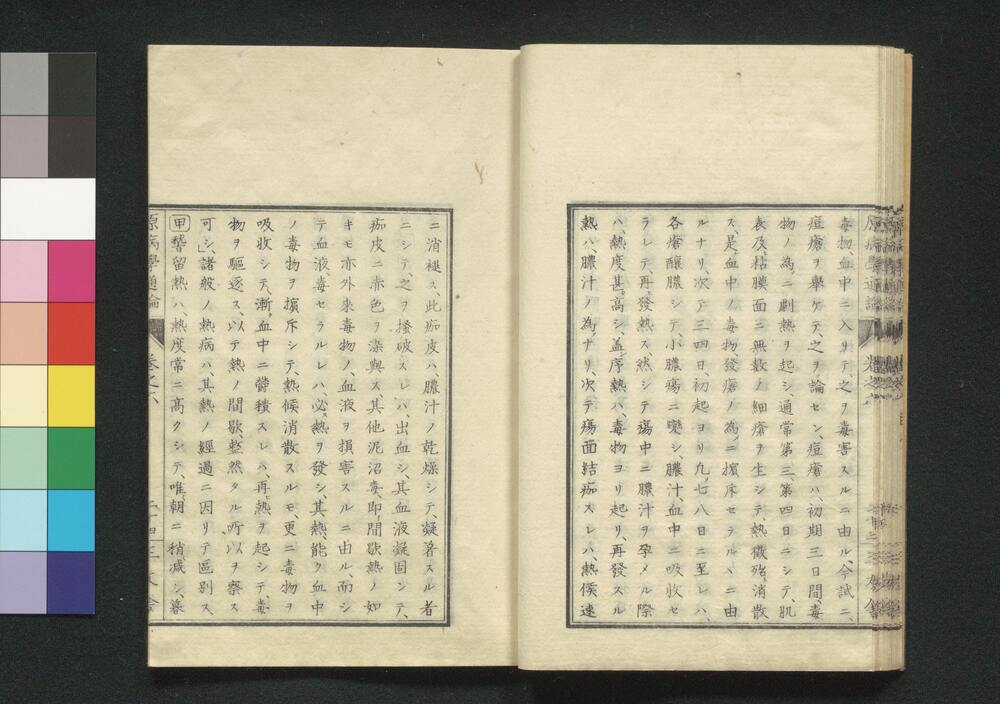 毒物血中ニ入リテ、之ヲ毒害スルニ由ル、今試ニ、
痘瘡ヲ擧ケテ、之ヲ論セン、痘瘡ハ、初期三日間毒
物ノ為ニ劇熱ヲ起シ、通常第三、第四日ニシテ、肌
表及粘膜面ニ無數ノ細瘡ヲ生シテ、熱徴殆消散
ス、是血中ノ毒物、發瘡ノ為ニ擯斥セラルヽニ由
ルナリ、次テ三四日、初起ヨリ九七八日ニ至レハ、
各瘡釀膿シテ、小膿瘍ニ變シ、膿汁、血中ニ吸收セ
ラレテ、再發熱ス、然シテ瘍中ニ膿汁ヲ孕メル際
ハ、熱度甚高シ、蓋序熱ハ、毒物ヨリ起リ、再發スル
熱ハ、膿汁ノ為ナリ、次テ瘍面結痂スレハ、熱候速
ニ消褪ス、此痂皮ハ、膿汁ノ乾燥シテ、凝着スル者
ニシテ、之ヲ搔破スレハ、出血シ、其血液凝固シテ、
痂皮ニ赤色ヲ染與ス、其他泥沼毒、即間歇熱ノ如
キモ亦外來毒物ノ、血液ヲ損害スルニ由ル、而シ
テ血液、毒セラルレハ、必熱ヲ發シ、其熱、能ク血中
ノ毒物ヲ擯斥シテ、熱候消散スルモ、更ニ毒物ヲ
吸收シテ、漸血中ニ蓄積スレハ、再熱ヲ起シテ、毒
物ヲ驅逐ス、以テ熱ノ間歇、整然タル所以ヲ察ス
可シ、諸般ノ熱病ハ、其熱ノ經過ニ因リテ區別ス、
甲 稽留熱ハ、熱度常ニ高クシテ、唯朝ニ稍減シ、暮
原病學通論 卷之六